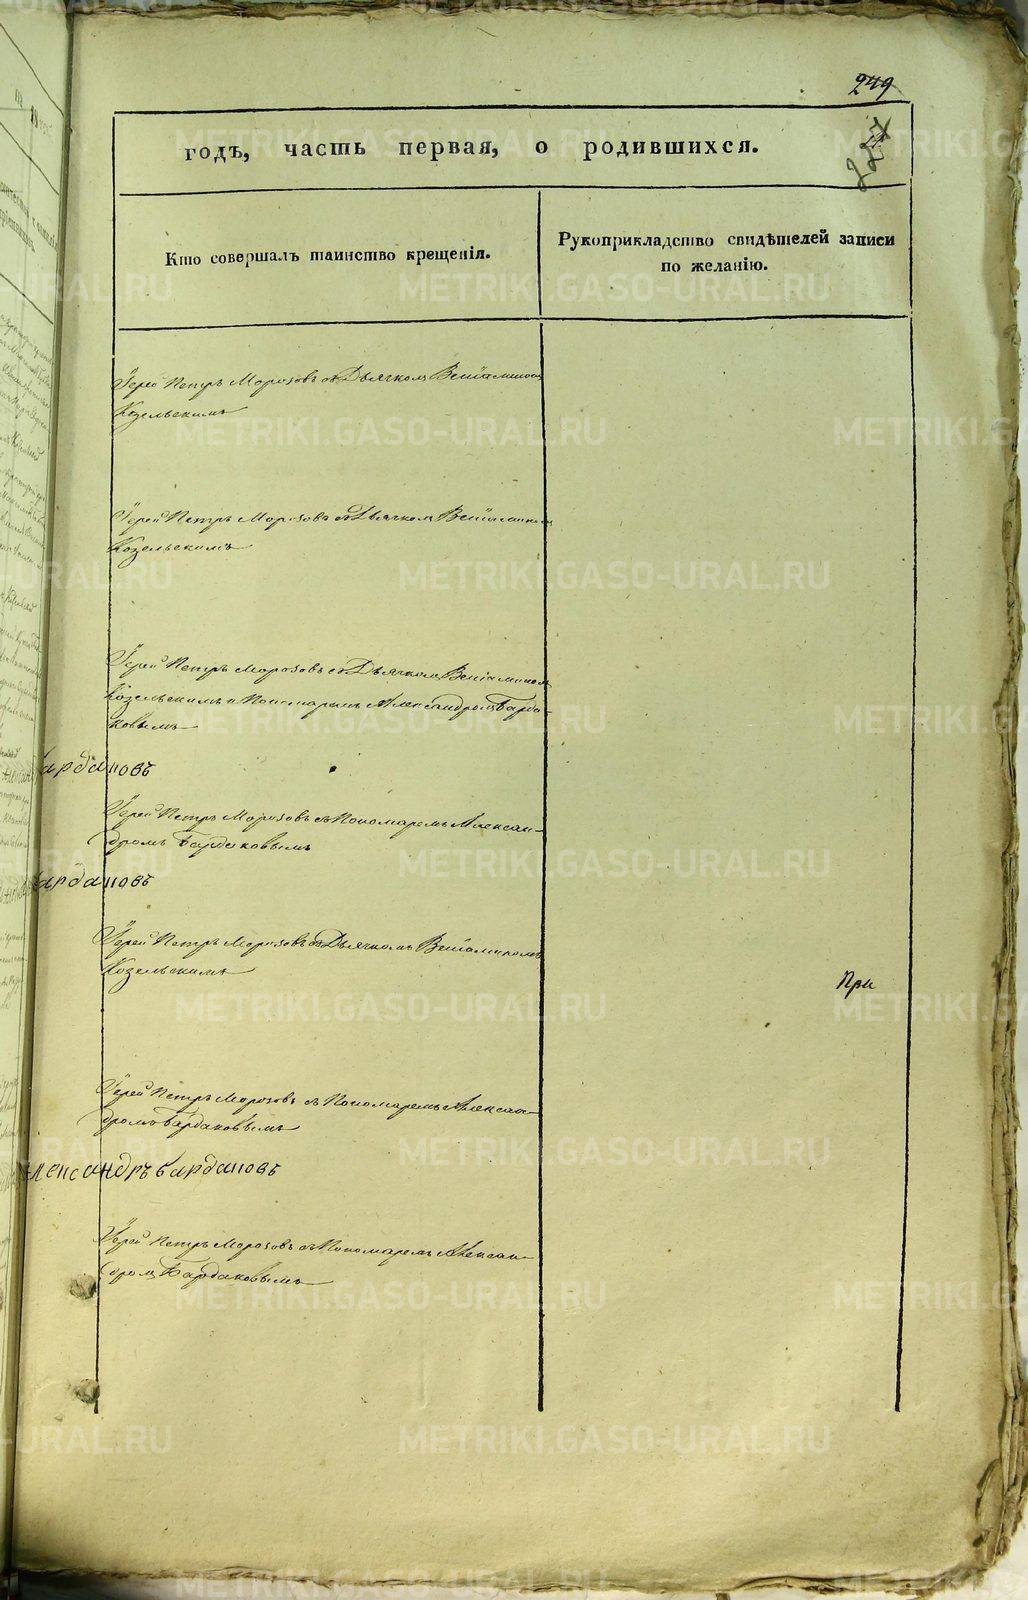 249
227
годъ, часть первая, о родившихся.
Кто совершалъ таинство крещенія.
Рукоприкладство свидѣтелей записи
по желанію.
Іерей Петръ Морозовъ съ Дьячком Веніамином
Козельскимъ
Іерей Петръ Морозовъ съ Дьячком Веніамином
Козельскимъ
Іерей Петръ Морозовъ съ Дьячком Веніамином
Козельскимъ и Пономаремъ Александром Барда-
ковымъ
Іерей Петръ Морозовъ съ Пономаремъ Алексан-
дромъ Бардаковымъ
Іерей Петръ Морозовъ съ Дьячкомъ Веніаминомъ
Козельскимъ
При
Іерей Петръ Морозовъ съ Пономаремъ Алексан-
дромъ Бардаковымъ
Іерей Петръ Морозовъ съ Пономаремъ Алексан-
дром Бардаковымъ
METRIKI.GASO-URAL.RU